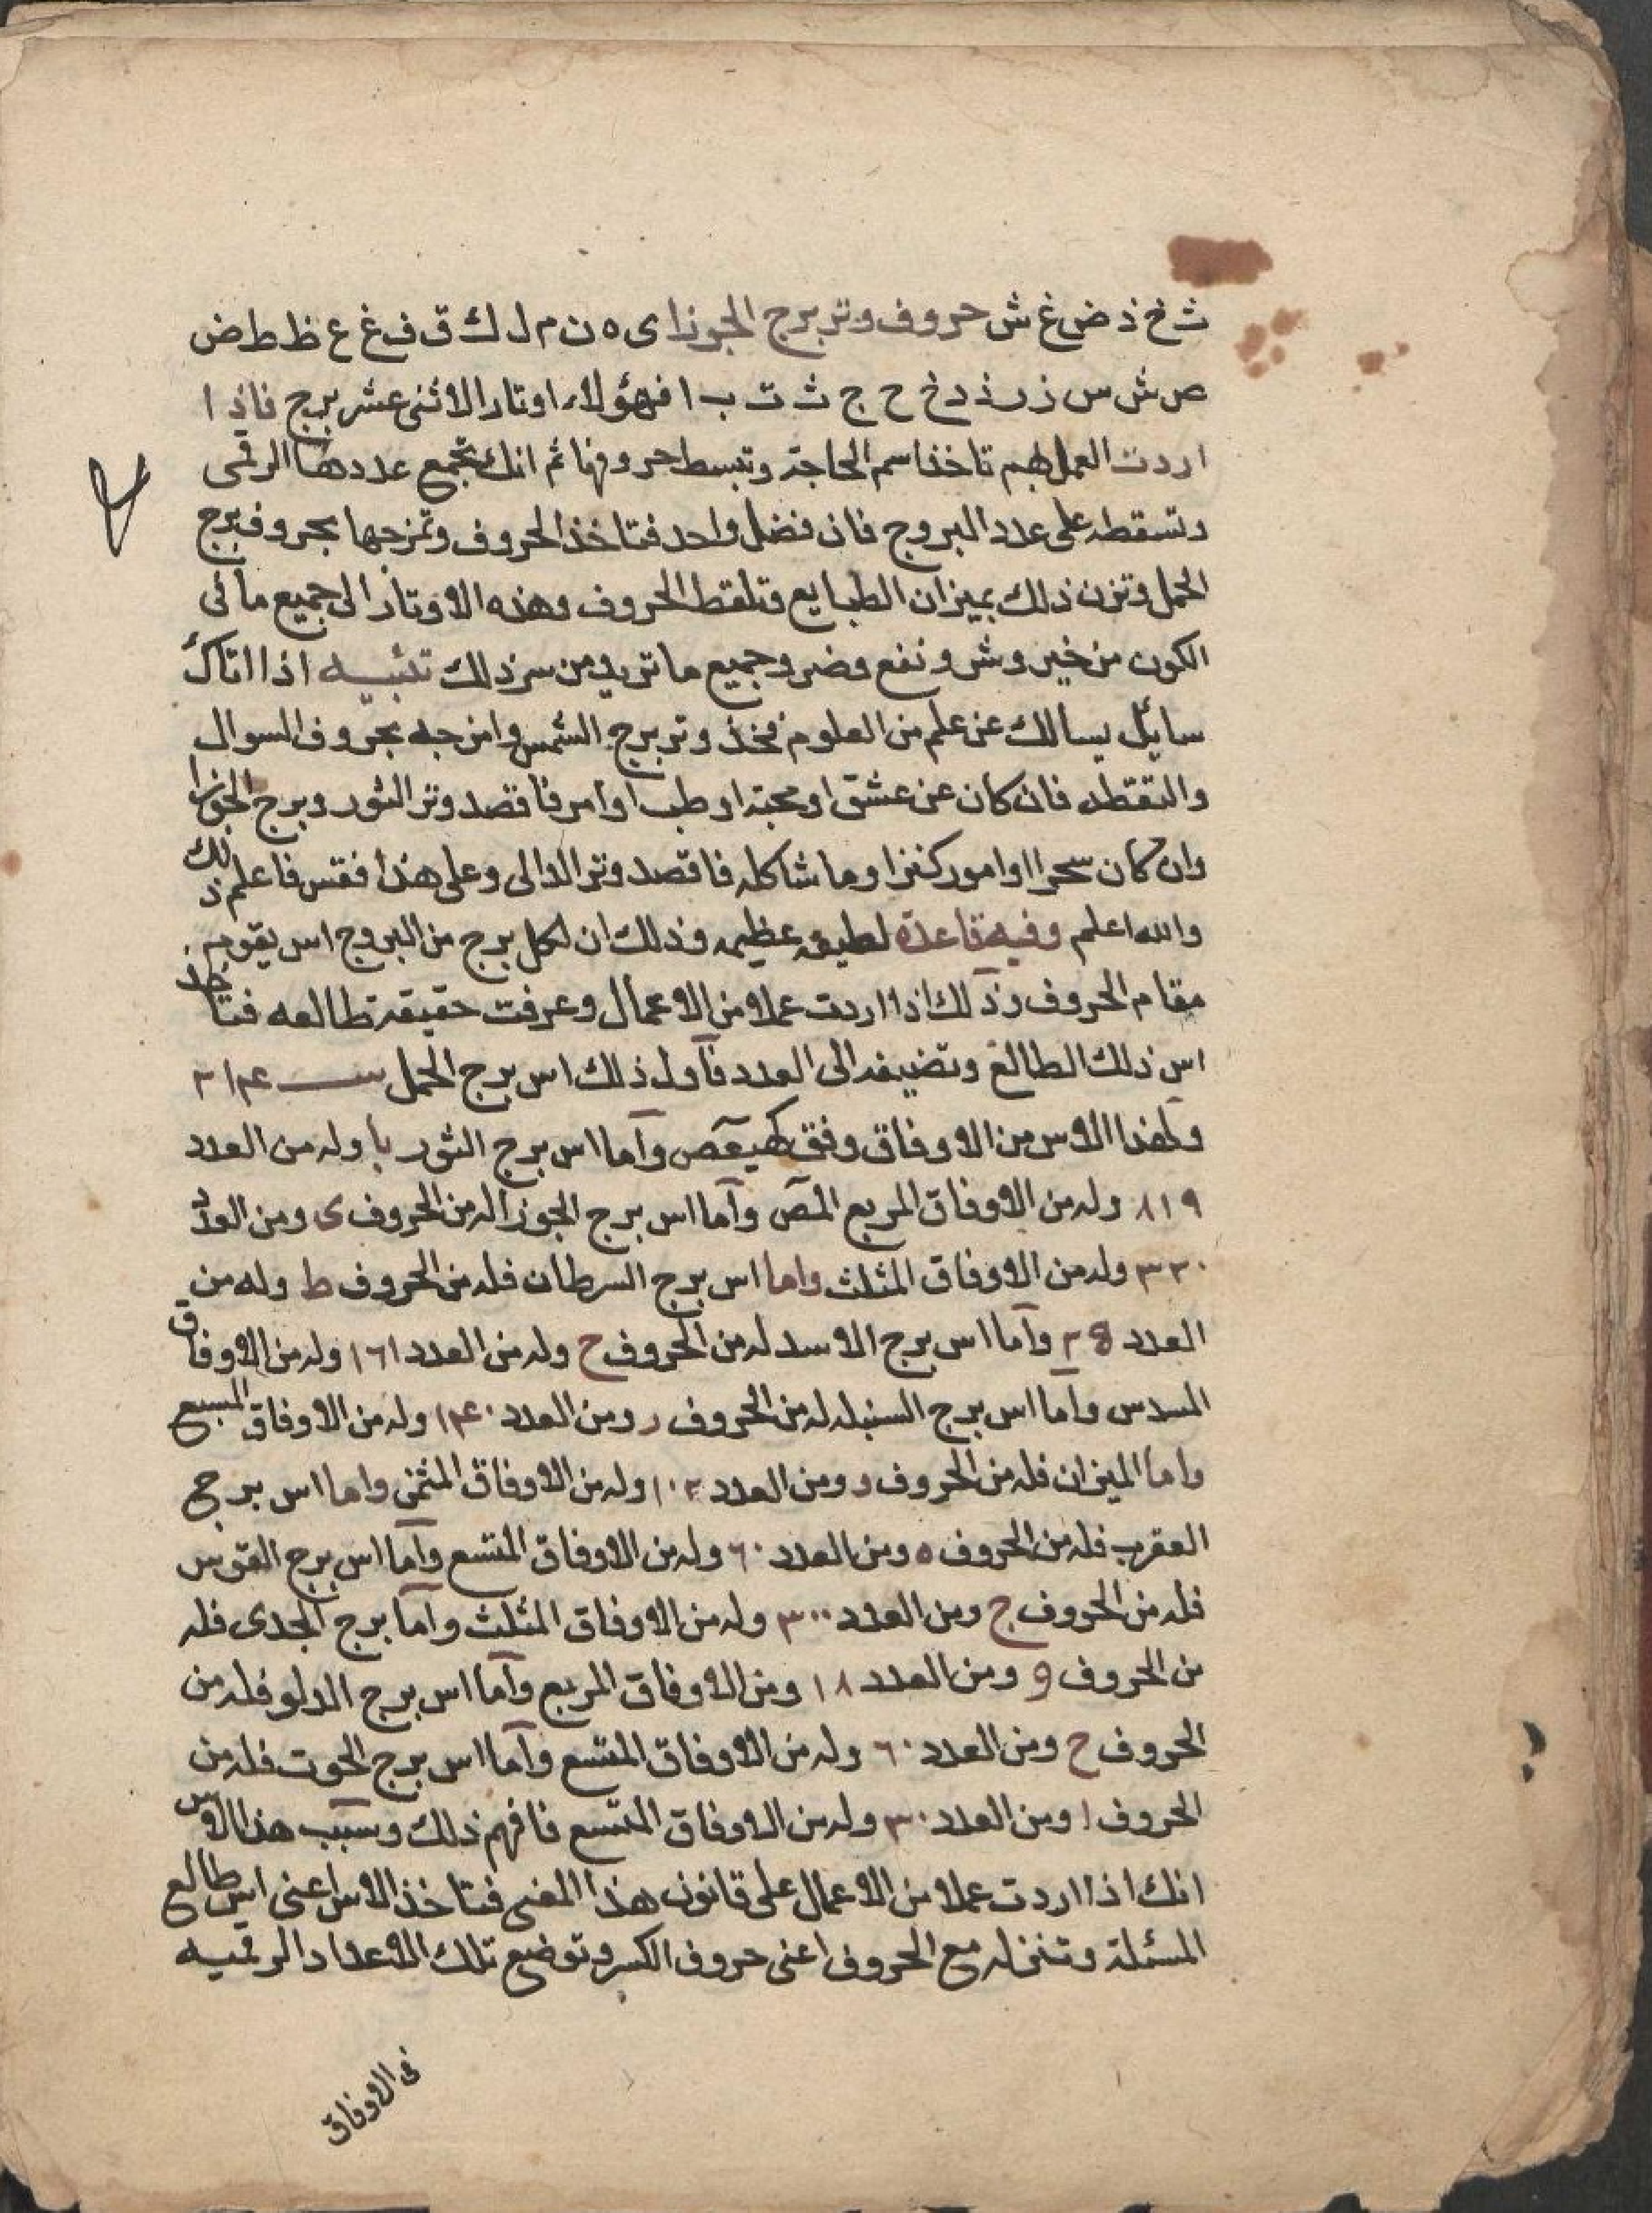 ث خ ذ ض غ ش حروف وتر برج الجوزا ى ه ن م ل ك ق ف غ ع ظ ط ض
ص ش س ز ر ذ د خ ح ج ث ت ب ا فهؤلاء اوتار الاثنى عشر برج فاذا
اردت العمل بهم تاخذ اسم الحاجة وتبسط حروفها ثم انك تجمع عددها الرقمى
وتسقطه على عدد البروج فان فضل واحد فتاخذ الحروف وتمزجها بحروف برج
الحمل وتزن ذلك بميزان الطبايع وتلقط الحروف وهذه الاوتار الى جميع ما فى
الكون من خير وشر ونفع وضر وجميع ما تريد من سر ذلك تنبيه اذا اتاك
سايل يسالك عن علم من العلوم فخذ وتر برج الشمس وامزجه بحروف السوال
والتقطه فان كان عن عشق او محبة او طب او امر فاقصد وتر الثور وبرج الجوزا
وان كان سحرا او امور كنز او ما شاكله فاقصد وتر الدالى وعلى هذا فقس فاعلم ذلك
والله اعلم وفيه قاعدة لطيفه عظيمه وذلك ان لكل برج من البروج اس يقوم
مقام الحروف وذلك اذا اردت عملا من الاعمال وعرفت حقيقة طالعه فتاخذ
اس ذلك الطالع وتضيفه الى العدد فاول ذلك اس برج الحمل
ولهذا الاس من الاوفاق وفق كهيعص واما اس برج الثور با وله من العدد
٨١٩ وله من الاوفاق المربع المص واما اس برج الجوزا له من الحروف ى ومن العدد
٣٣٠ وله من الاوفاق المثلث واما اس برج السرطان فله من الحروف ط وله من
العدد واما اس برج الاسد له من الحروف ح وله من العدد ١٦١ وله من الاوفاق
المسدس واما اس برج السنبله له من الحروف ر ومن العدد ١٣٤٠ وله من الاوفاق المسبع
واما الميزان فله من الحروف و ومن العدد ١٠٢ وله من الاوفاق المثمن واما اس برج
العقرب فله من الحروف ه ومن العدد ٦٠ وله من الاوفاق المتسع واما اس برج القوس
فله من الحروف ج ومن العدد ٣٠٠ وله من الاوفاق المثلث واما برج الجدى فله
من الحروف و ومن العدد ١٨ ومن الاوفاق المربع واما اس برج الدلو فله من
الحروف ح ومن العدد ٦٠ وله من الاوفاق المتسع واما اس برج الحوت فله من
الحروف ا ومن العدد ٣٠ وله من الاوفاق المتسع فافهم ذلك وسبب هذا الاس
انك اذا اردت عملا من الاعمال على قانون هذا المعنى فتاخذ الاس اعنى اس طالع
المسئلة وتنزله مع الحروف اعنى حروف الكسر وتوضع تلك الاعداد الرقميه
فى الاوفاق